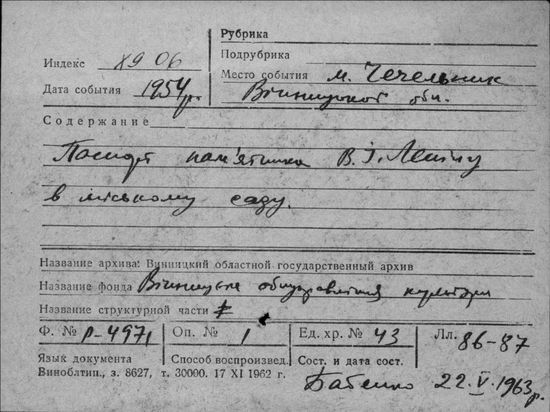 Рубрика
Индекс XЯ 06 Подрубрика
Место события м. Чечельник
Дата события 1954 р. Вінницької обл.
Содержание
Паспорт пам'ятника В. І. Леніну
в міському саду.
Название архива: Винницкий областной государственный архив
Название фонда Вінницьке облуправління культури
Название структурной части
Ф. № Р-4971 Оп. № 1 Ед. хр. № 43 Лл. 86-87
Язык документа Способ воспроизвед. Сост. и дата сост.
Виноблтип., з. 8627, т. 30000. 17 XI 1962 г. Бабенко 22.V.1963 р.